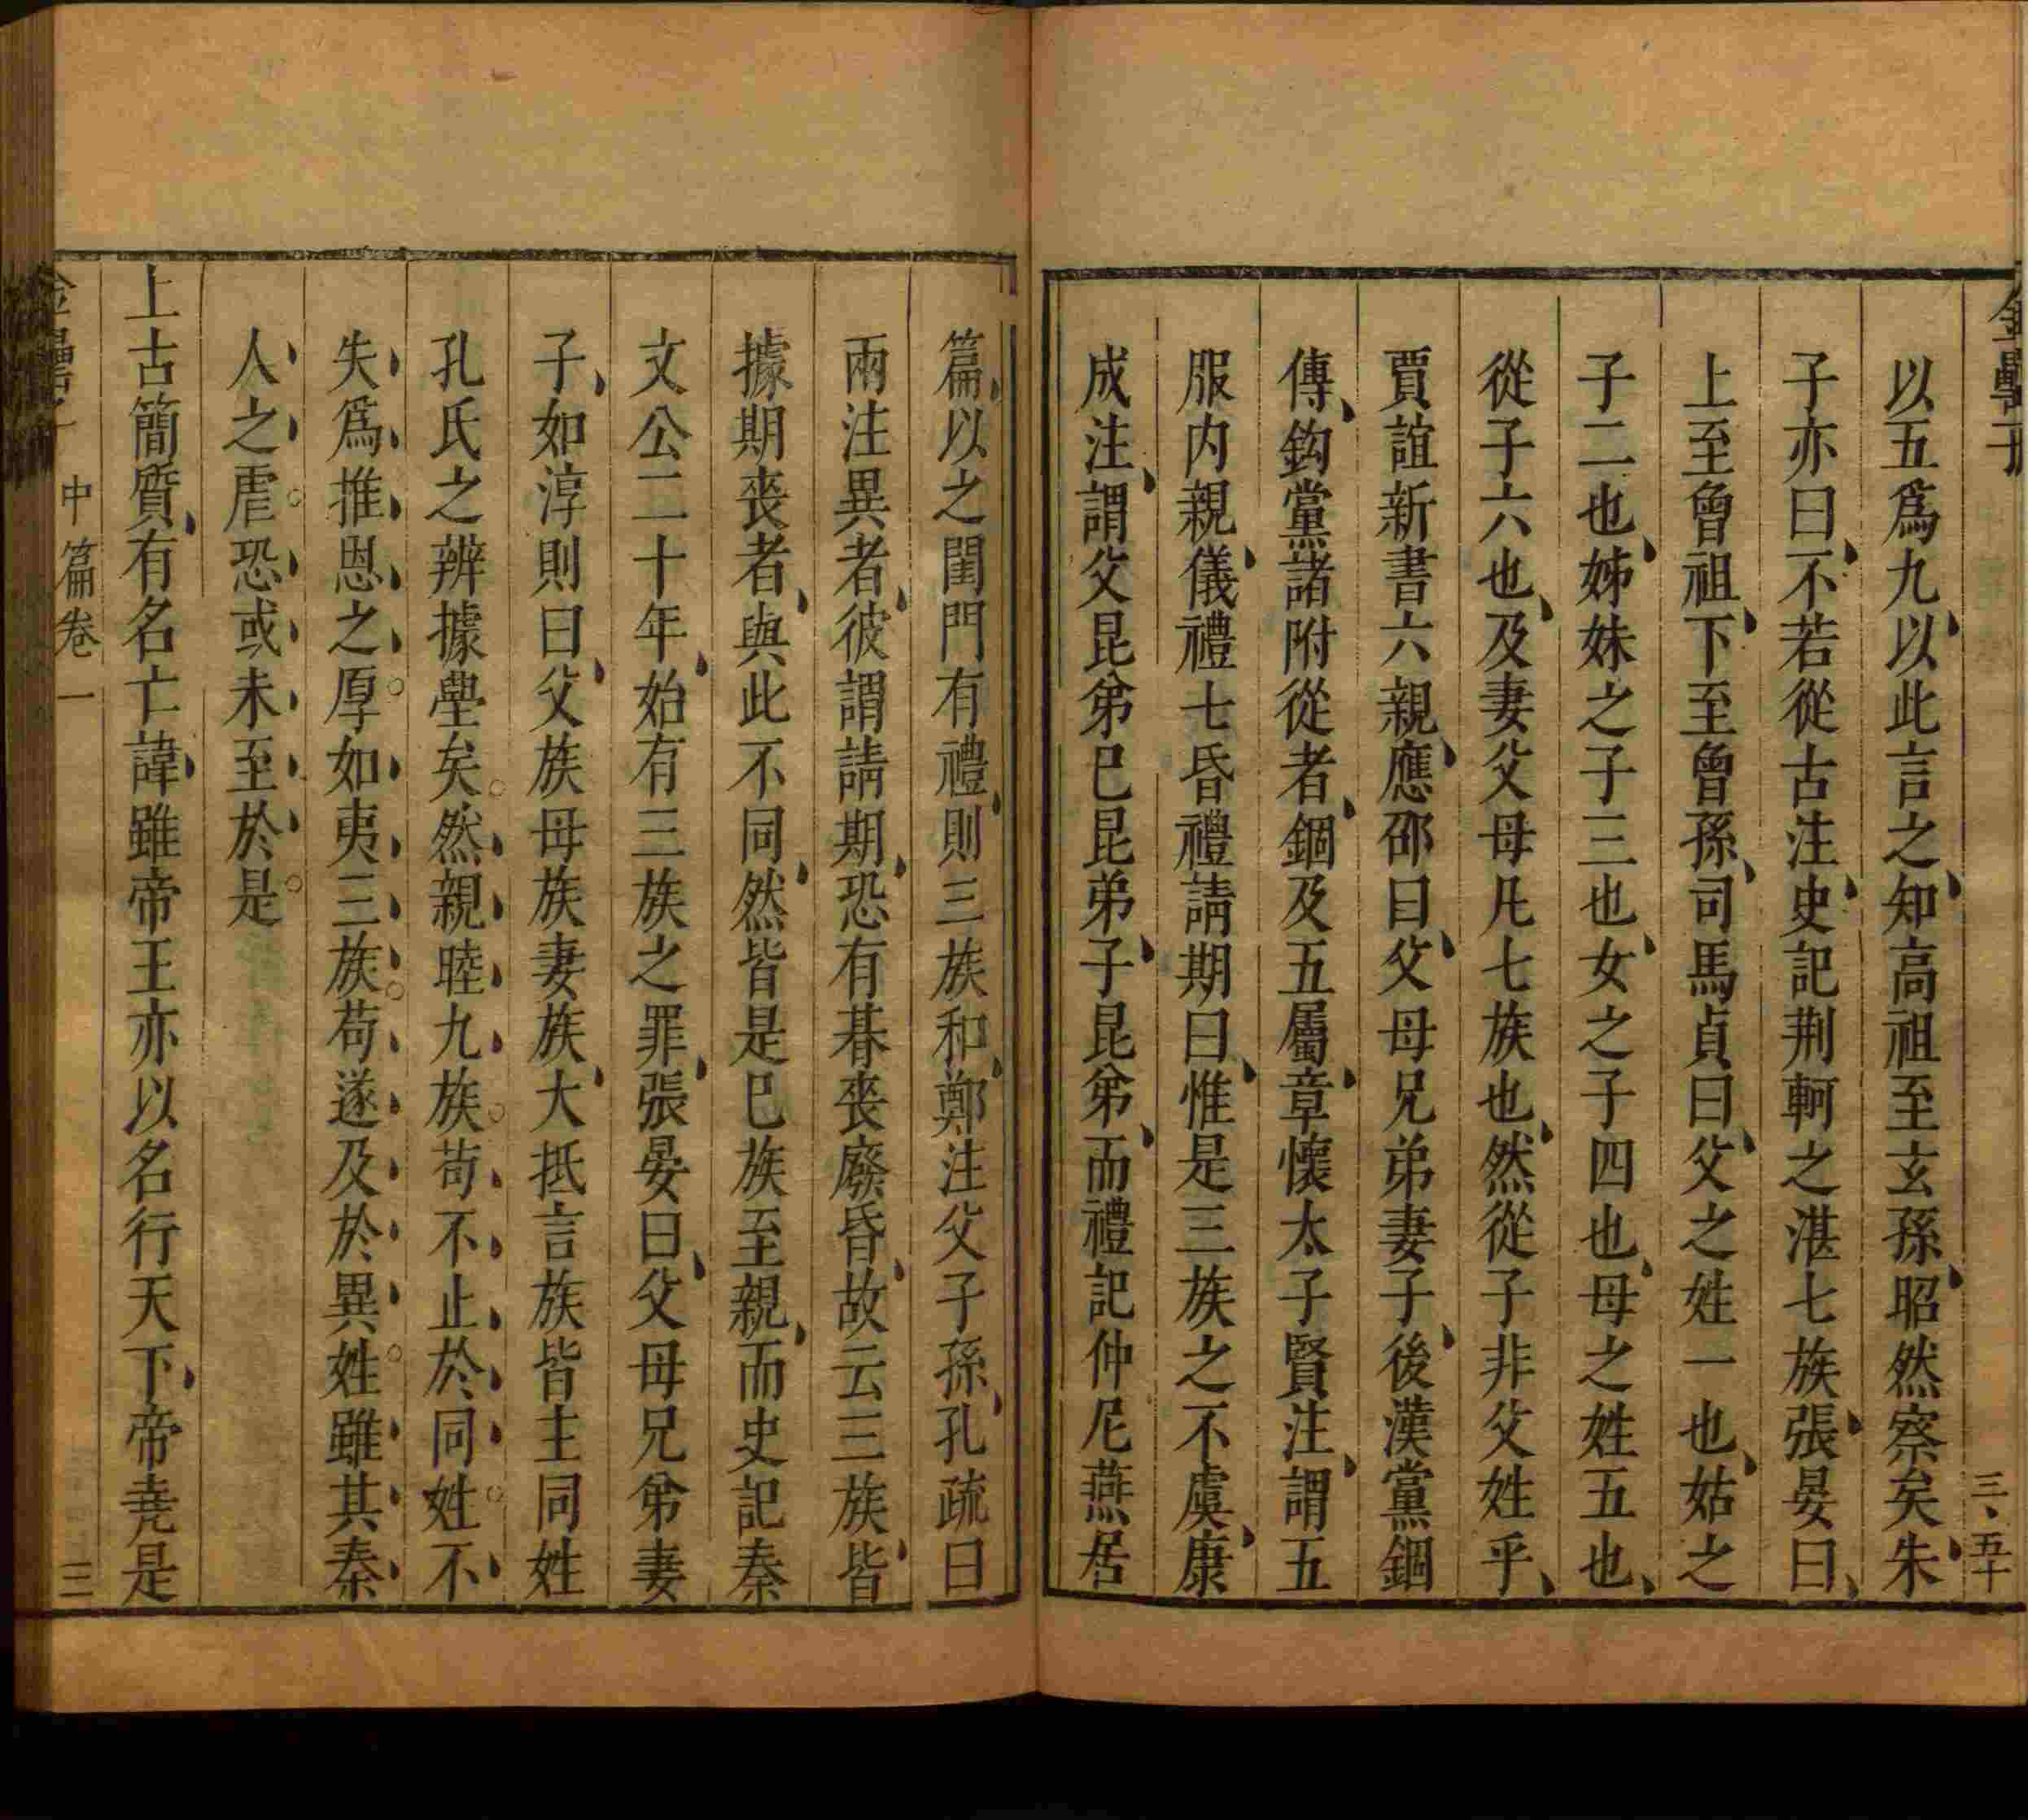 以五爲九以此言之知高祖至玄孫昭然察矣朱
子亦曰不若從古注史記荆軻之湛七族張晏曰
上至曾祖下至曾孫司馬貞曰父之姓一也姑之
子二也姊妹之子三也女之子四也母之姓五也
從子六也及妻父母凡七族也然從子非父姓乎
賈誼新書六親應邵曰父母兄弟妻子後漢黨錮
傳鈎黨諸附從者錮及五屬章懷太子賢注謂五
服内親儀禮七昏禮請期曰惟是三族之不虞康
成注謂父昆弟巳昆弟子昆弟而禮記仲尼燕居
篇以之閨門有禮則三族和鄭注父子孫孔疏曰
兩注異者彼謂請期恐有朞喪廢昏故云三族皆
據期喪者與此不同然皆是巳族至親而史記秦
文公二十年始有三族之罪張晏曰父母兄弟妻
子如淳則曰父族母族妻族大抵言族皆主同姓
孔氏之辨據壆矣然親睦九族苟不止於同姓不
失爲推恩之厚如夷三族苟遂及於異姓雖其秦
人之虐恐或未至於是
上古簡質有名亡諱雖帝王亦以名行天下帝堯是
中篇卷一 三